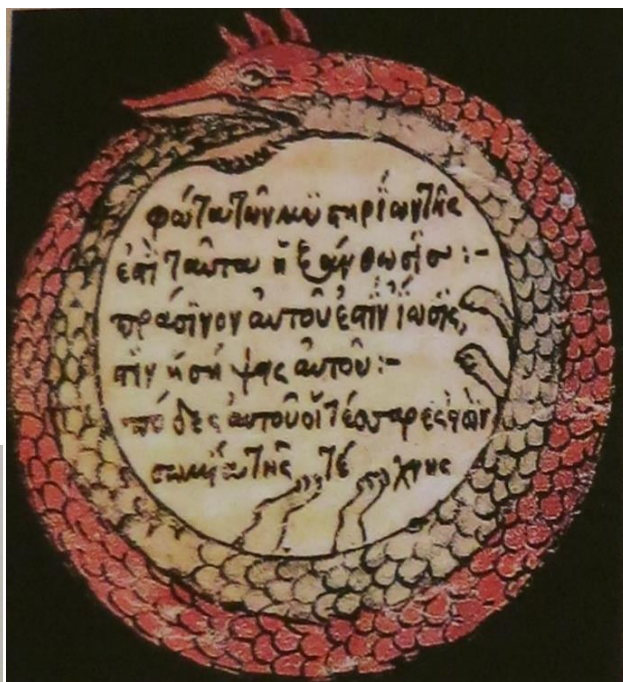 φώτα τῶν μυστηρίων τῆς
ἐστὶ ταῦτα ἡ ξάνθωσις :-
πράσϊνον αὐτοῦ ἐστὶν ἴωσϊς,
στὶν ἡ σήψϊς αὐτοῦ :-
πόδες αὐτοῦ οἱ τέσσαρες
σωμία τῆς τέ χνης